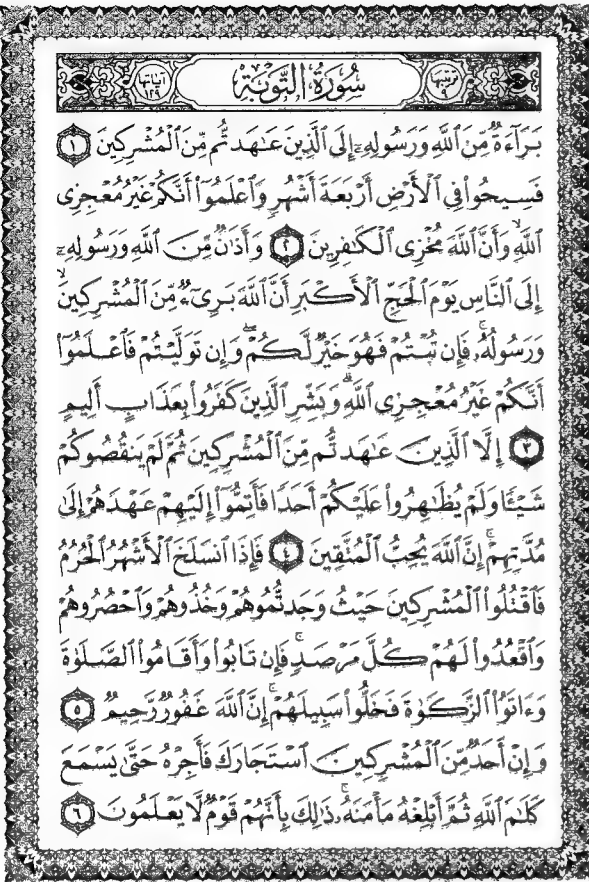 ترتيبها ٩ سُورَةُ التَّوۡبَةِ آياتها ١٢٩
بَرَآءَةٞ مِّنَ ٱللَّهِ وَرَسُولِهِۦٓ إِلَى ٱلَّذِينَ عَٰهَدتُّم مِّنَ ٱلۡمُشۡرِكِينَ ١
فَسِيحُواْ فِي ٱلۡأَرۡضِ أَرۡبَعَةَ أَشۡهُرٖ وَٱعۡلَمُوٓاْ أَنَّكُمۡ غَيۡرُ مُعۡجِزِي
ٱللَّهِ وَأَنَّ ٱللَّهَ مُخۡزِي ٱلۡكَٰفِرِينَ ٢ وَأَذَٰنٞ مِّنَ ٱللَّهِ وَرَسُولِهِۦٓ
إِلَى ٱلنَّاسِ يَوۡمَ ٱلۡحَجِّ ٱلۡأَكۡبَرِ أَنَّ ٱللَّهَ بَرِيٓءٞ مِّنَ ٱلۡمُشۡرِكِينَ
وَرَسُولُهُۥۚ فَإِن تُبۡتُمۡ فَهُوَ خَيۡرٞ لَّكُمۡۖ وَإِن تَوَلَّيۡتُمۡ فَٱعۡلَمُوٓاْ
أَنَّكُمۡ غَيۡرُ مُعۡجِزِي ٱللَّهِۗ وَبَشِّرِ ٱلَّذِينَ كَفَرُواْ بِعَذَابٍ أَلِيمٍ
٣ إِلَّا ٱلَّذِينَ عَٰهَدتُّم مِّنَ ٱلۡمُشۡرِكِينَ ثُمَّ لَمۡ يَنقُصُوكُمۡ
شَيۡـٔٗا وَلَمۡ يُظَٰهِرُواْ عَلَيۡكُمۡ أَحَدٗا فَأَتِمُّوٓاْ إِلَيۡهِمۡ عَهۡدَهُمۡ إِلَىٰ
مُدَّتِهِمۡۚ إِنَّ ٱللَّهَ يُحِبُّ ٱلۡمُتَّقِينَ ٤ فَإِذَا ٱنسَلَخَ ٱلۡأَشۡهُرُ ٱلۡحُرُمُ
فَٱقۡتُلُواْ ٱلۡمُشۡرِكِينَ حَيۡثُ وَجَدتُّمُوهُمۡ وَخُذُوهُمۡ وَٱحۡصُرُوهُمۡ
وَٱقۡعُدُواْ لَهُمۡ كُلَّ مَرۡصَدٖۚ فَإِن تَابُواْ وَأَقَامُواْ ٱلصَّلَوٰةَ
وَءَاتَوُاْ ٱلزَّكَوٰةَ فَخَلُّواْ سَبِيلَهُمۡۚ إِنَّ ٱللَّهَ غَفُورٞ رَّحِيمٞ ٥
وَإِنۡ أَحَدٞ مِّنَ ٱلۡمُشۡرِكِينَ ٱسۡتَجَارَكَ فَأَجِرۡهُ حَتَّىٰ يَسۡمَعَ
كَلَٰمَ ٱللَّهِ ثُمَّ أَبۡلِغۡهُ مَأۡمَنَهُۥۚ ذَٰلِكَ بِأَنَّهُمۡ قَوۡمٞ لَّا يَعۡلَمُونَ ٦